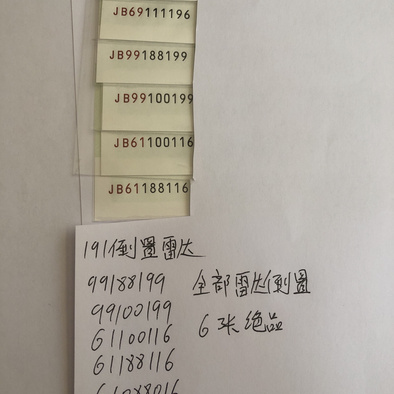 JB69111196
JB99188199
JB99100199
JB61100116
JB61188116
191倒置雷达
99188199 全部雷达倒置
99100199
61100116 6张绝品
61188116